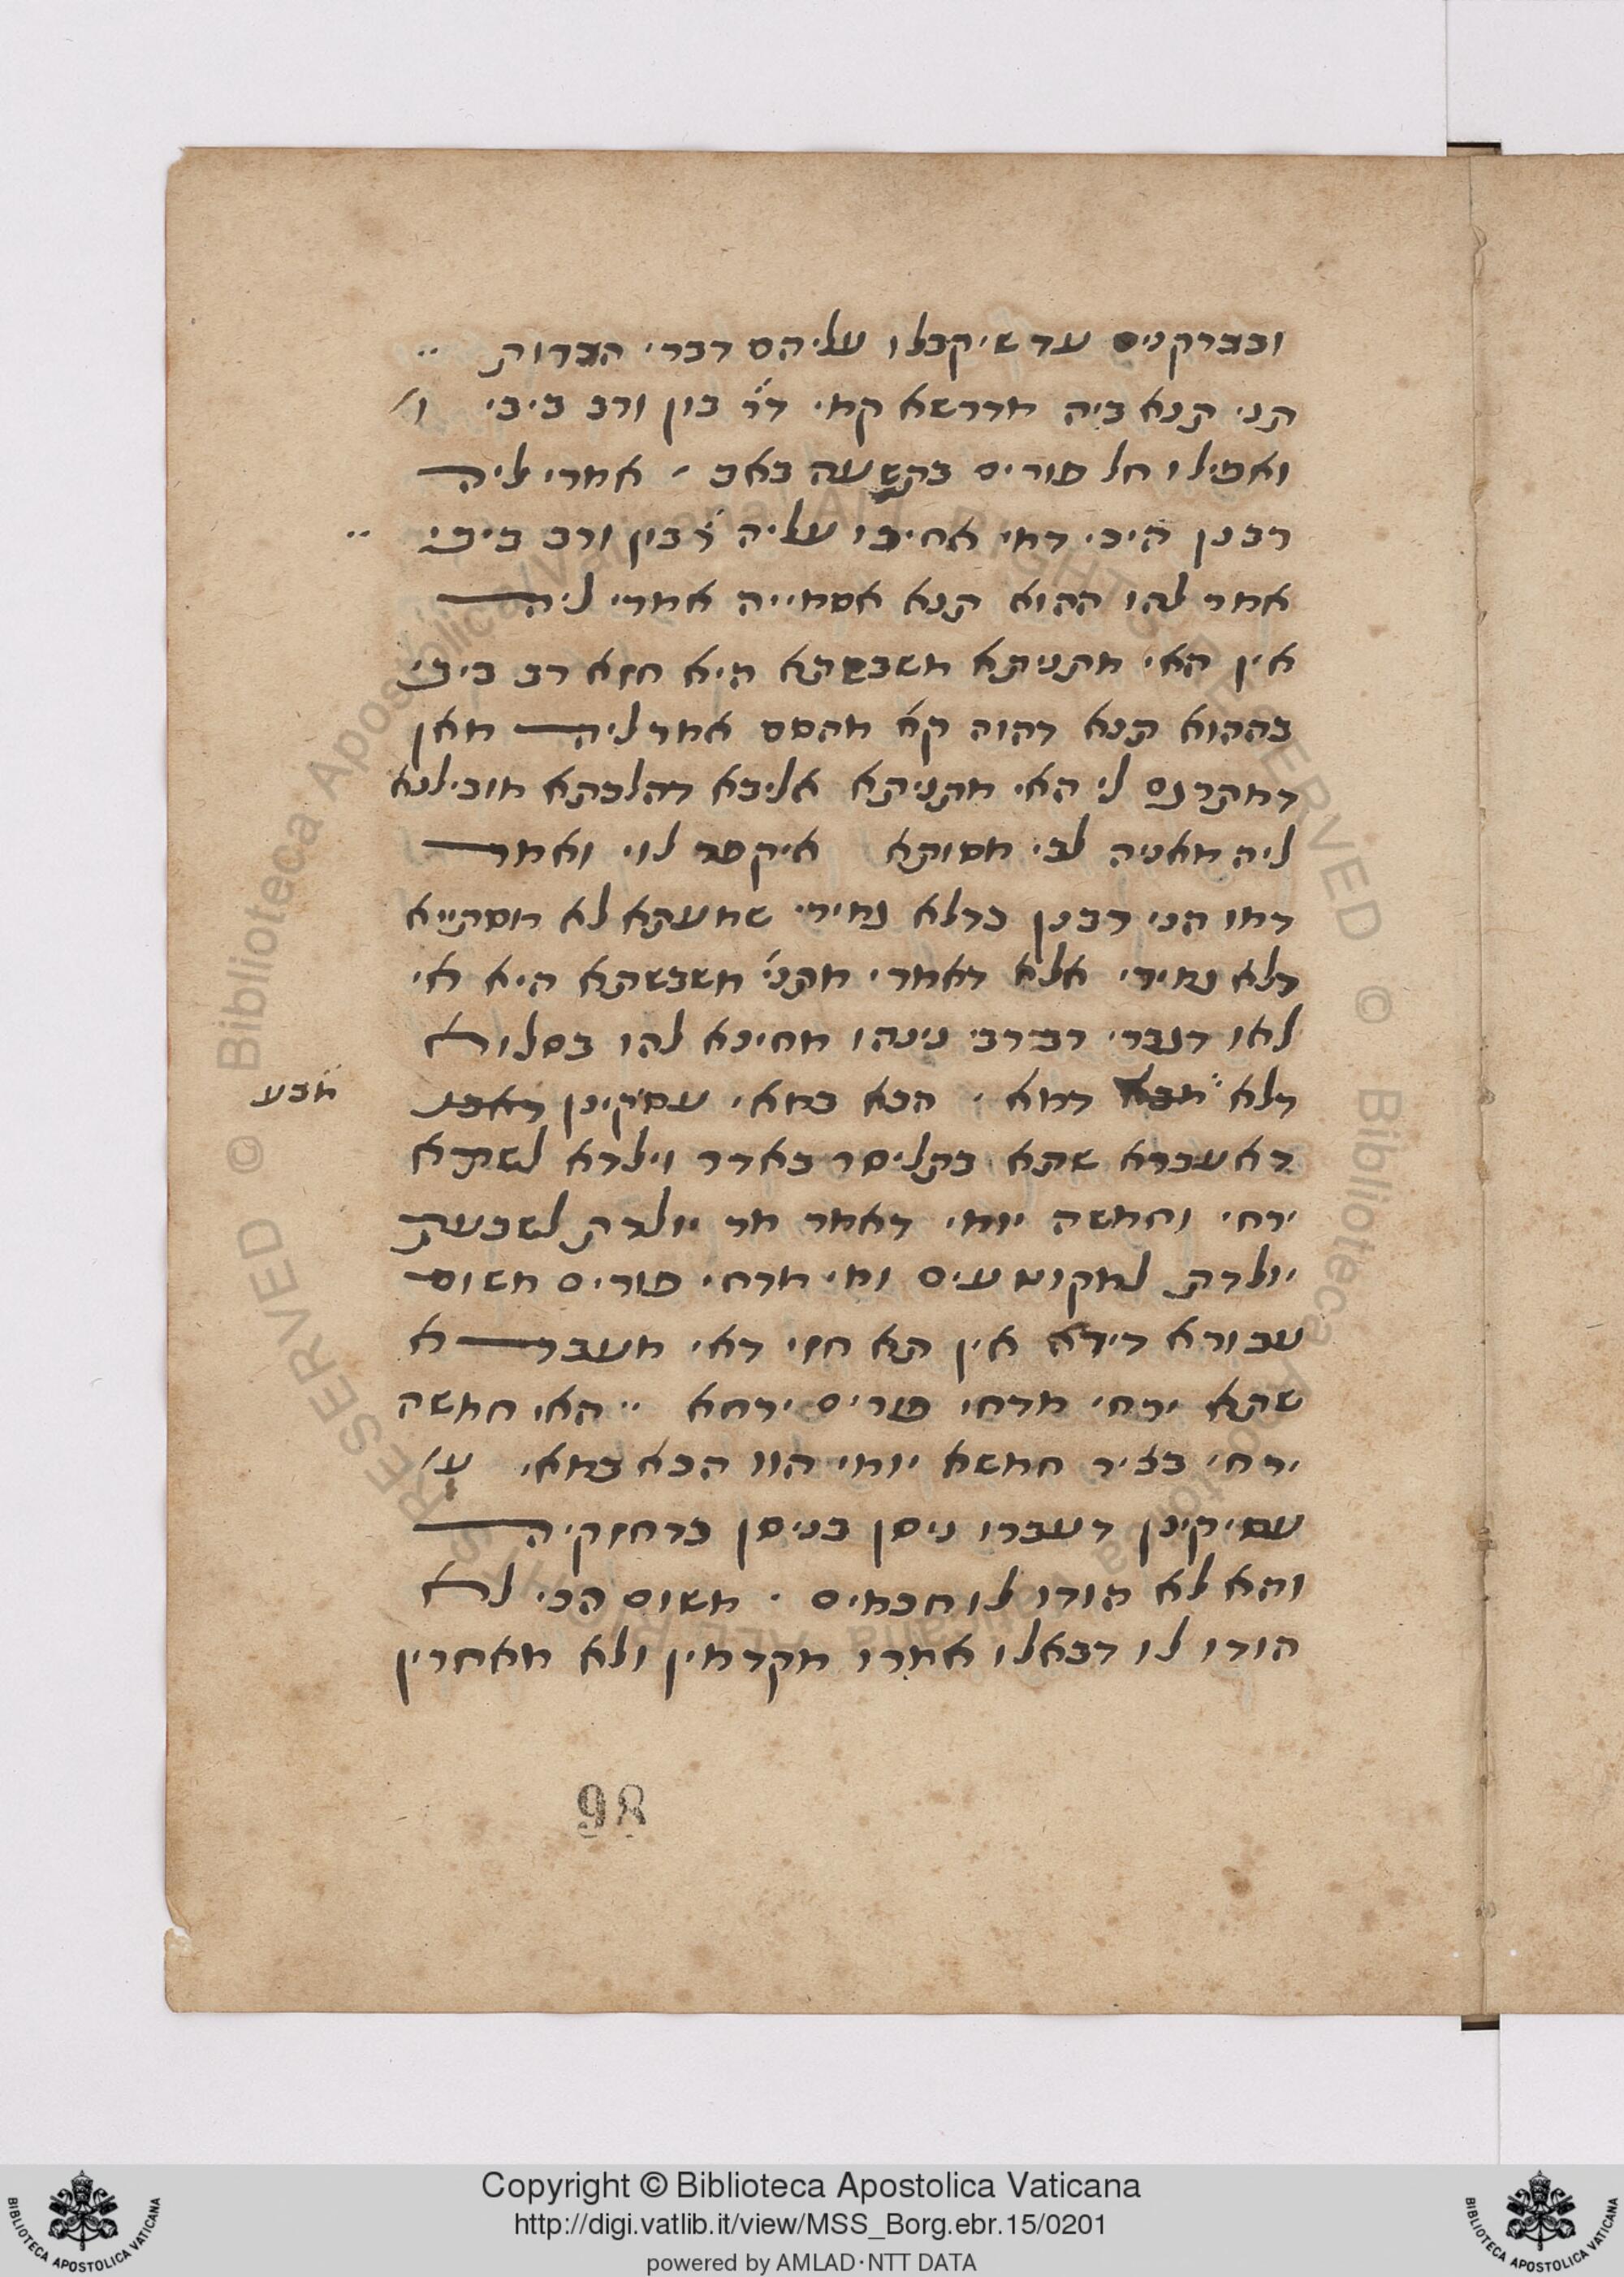 ובברקנים עד שיקבלו עליהם דברי הברות
תני תנא ביה מדרשא קמי דר׳ בון ורב ביבי ו׳
ואפילו חל פורים בתשעה באב אמרי ליה
רבנן היכי דמי אחיבו עליה ר׳ בון ורב ביבי
אמר להו ההוא תנא אסמייה אמרי ליה
אין האי מתניתא משבשתא היא חזא רב ביבי
בההוא תנא דהוה קא מהסס אמר ליה מאן
דמתרגם לי האי מתניתא אליבא דהלכתא מובילנא
ליה מאניה לבי מסותא איקפד לוי ואמר
דמו הני רבנן כדלא גמירי שמעתא לא מסתייא
דלא גמירי אלא דאמרי מתני׳ משבשתא היא אי
לאו דגברי רברבי נינהו מחינא להו בסלוא
דלא דמא הכא במאי עסקינן
מבע
דאעברא שתא בתליסר באדר וילדא לשתא
ירחי וחמשה יומי דאמר מר יולדת לשבעת
יולדת למקוטעים ומי מדחי פורים משום
עבורא דידא אין תא חזי דאי מעברא
שתא ירחי מדחי פורים ירחא האי חמשה
ירחי בציר חמשא יומי הוו הכא במאי ע׳
עסיקינן דעברו ניסן בניסן כדחזקיה
והא לא הודו לו חכמים משום הכי לא
הודו לו דבאלו אמרו מקדמין ולא מאחרין
98
Copyright © Biblioteca Apostolica Vaticana
http://digi.vatlib.it/view/MSS_Borg.ebr.15/0201
powered by AMLAD·NTT DATA